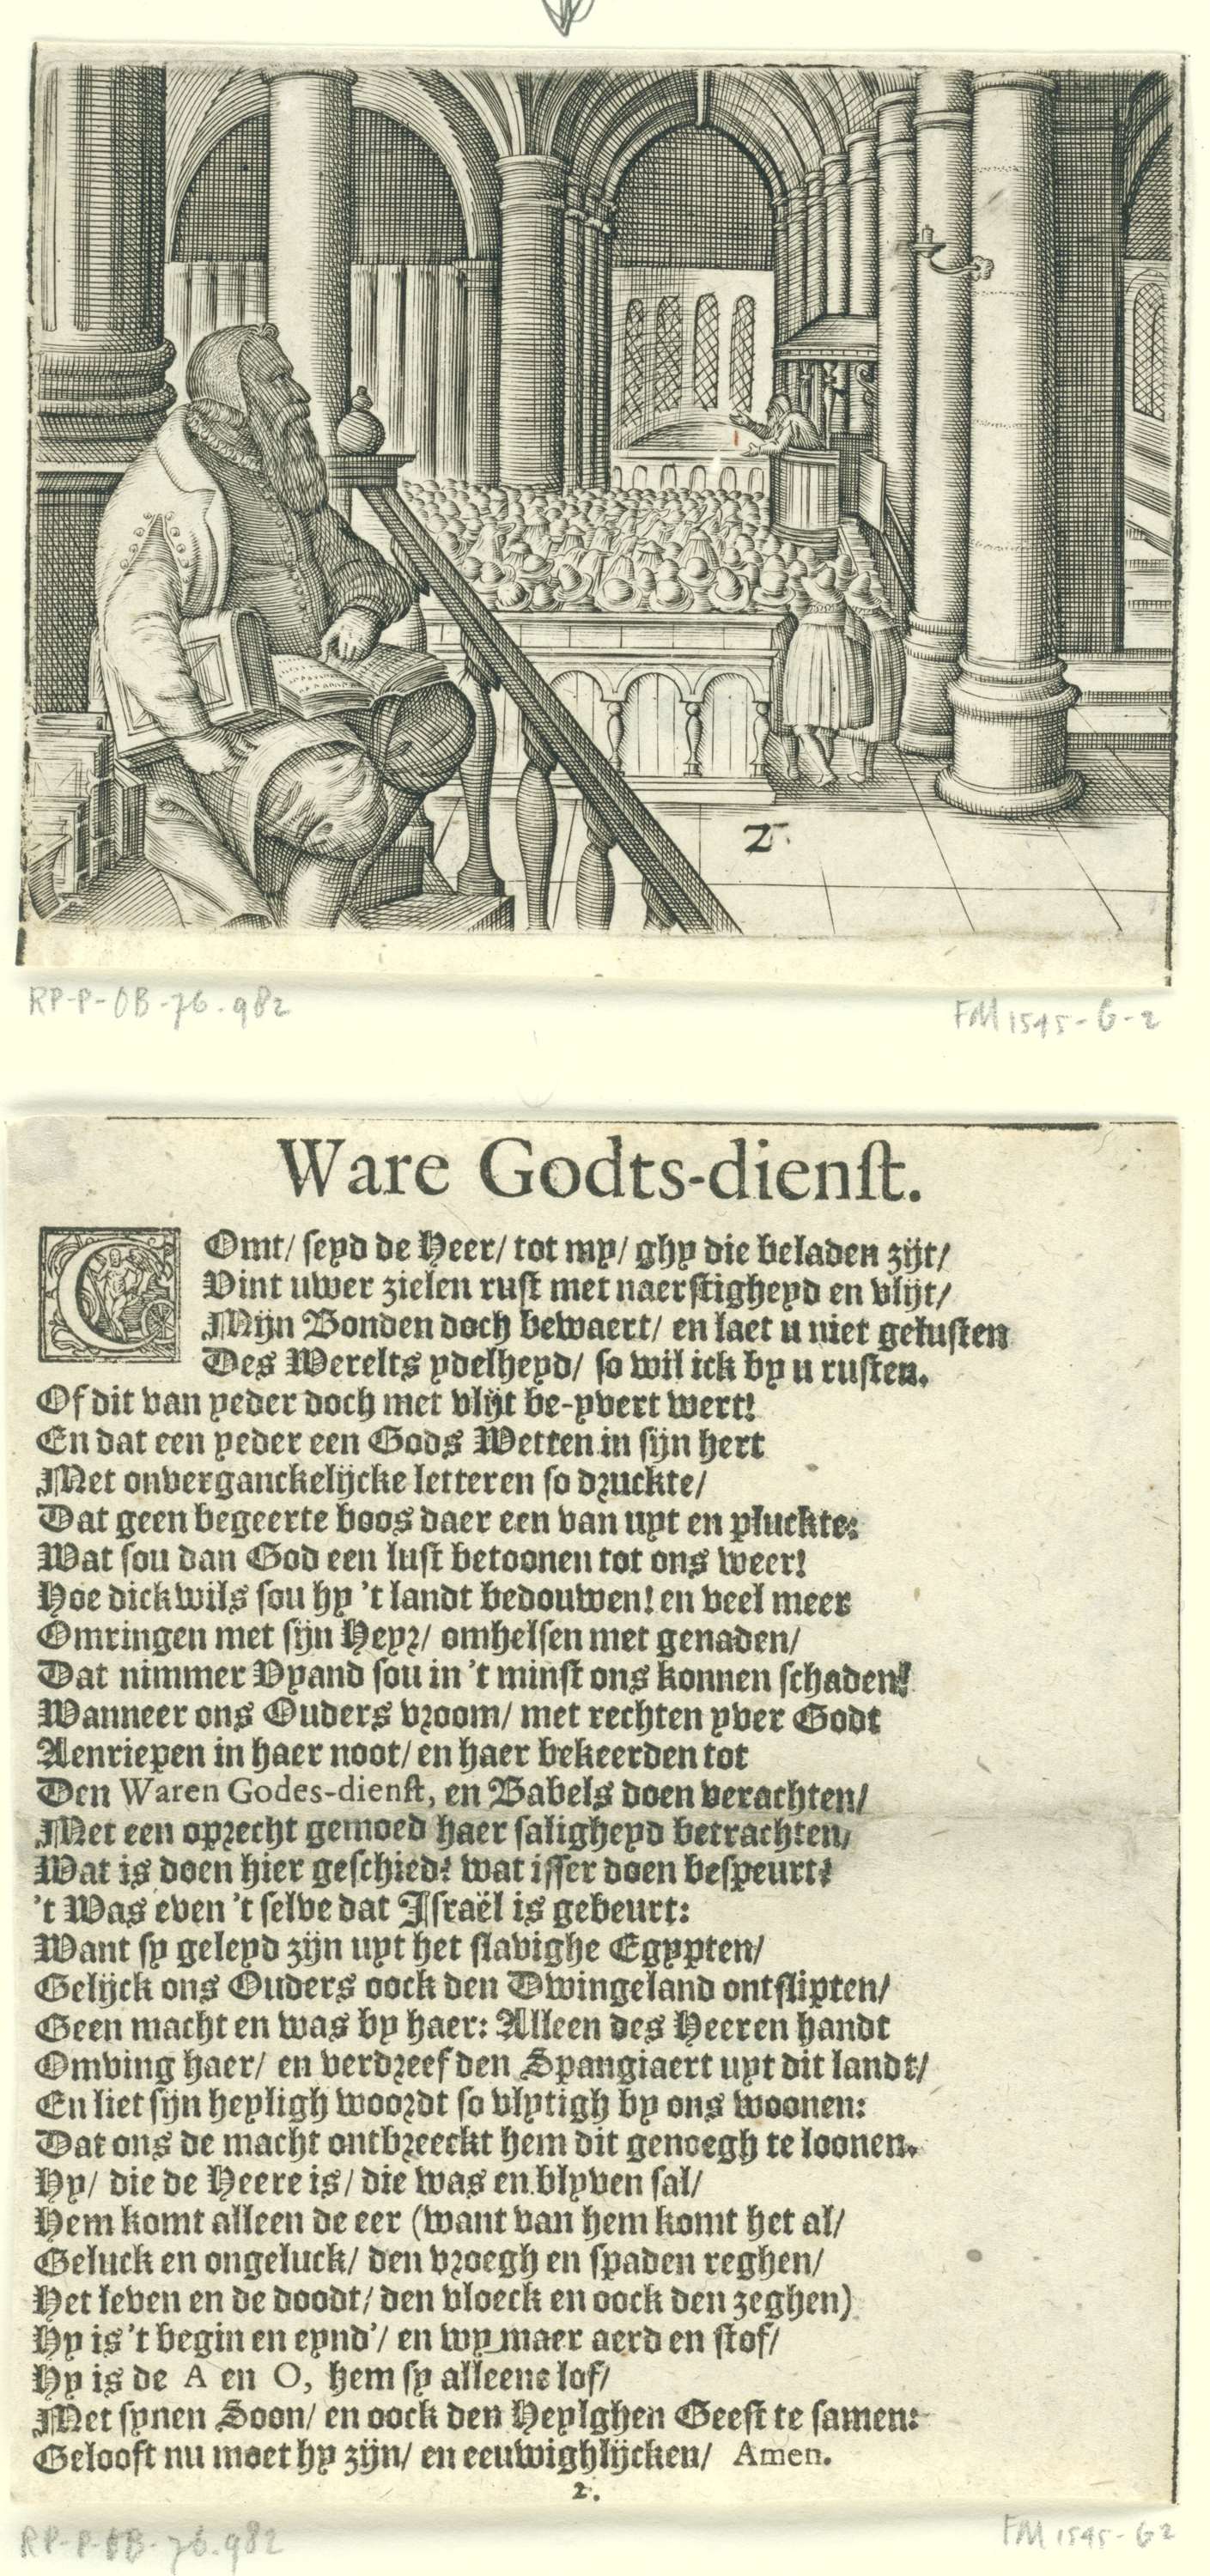 2.
RP-P-OB-76.982
FM 1545-G-2
Ware Godts-dienst.
COmt/ seyd de Heer/ tot my/ ghy die beladen zijt/
Vint uwer zielen rust met naerstigheyd en vlijt/
Mijn Bonden doch bewaert/ en laet u niet gelusten
Des Werelts ydelheyd/ so wil ick by u rusten.
Of dit van yeder doch met vlijt be-yvert wert!
En dat een yeder een Gods Wetten in sijn hert
Met onverganckelijcke letteren so druckte/
Dat geen begeerte boos daer een van uyt en pluckte:
Wat sou dan God een lust betoonen tot ons weer!
Hoe dickwils sou hy 't landt bedouwen! en veel meer
Omringen met sijn Heyr/ omhelsen met genaden/
Dat nimmer Vyand sou in 't minst ons konnen schaden!
Wanneer ons Ouders vroom/ met rechten yver Godt
Aenriepen in haer noot/ en haer bekeerden tot
Den Waren Godes-dienst, en Babels doen verachten/
Met een oprecht gemoed haer saligheyd betrachten,
Wat is doen hier geschied? wat isser doen bespeurt?
't Was even 't selve dat Israël is gebeurt:
Want sy geleyd zijn uyt het slavighe Egypten/
Gelijck ons Ouders oock den Dwingeland ontslipten/
Geen macht en was by haer: Alleen des Heeren handt
Omving haer/ en verdreef den Spangiaert uyt dit landt/
En liet sijn heyligh woordt so vlytigh by ons woonen:
Dat ons de macht ontbreeckt hem dit genoegh te loonen.
Hy/ die de Heere is/ die was en blyven sal/
Hem komt alleen de eer (want van hem komt het al/
Geluck en ongeluck/ den vroegh en spaden reghen/
Het leven en de doodt/ den vloeck en oock den zeghen)
Hy is 't begin en eynd'/ en wy maer aerd en stof/
Hy is de A en O, hem sy alleene lof/
Met synen Soon/ en oock den Heylghen Geest te samen:
Gelooft nu moet hy zijn/ en eeuwighlijcken/ Amen.
2.
RP-P-OB-76.982
FM 1545-G2